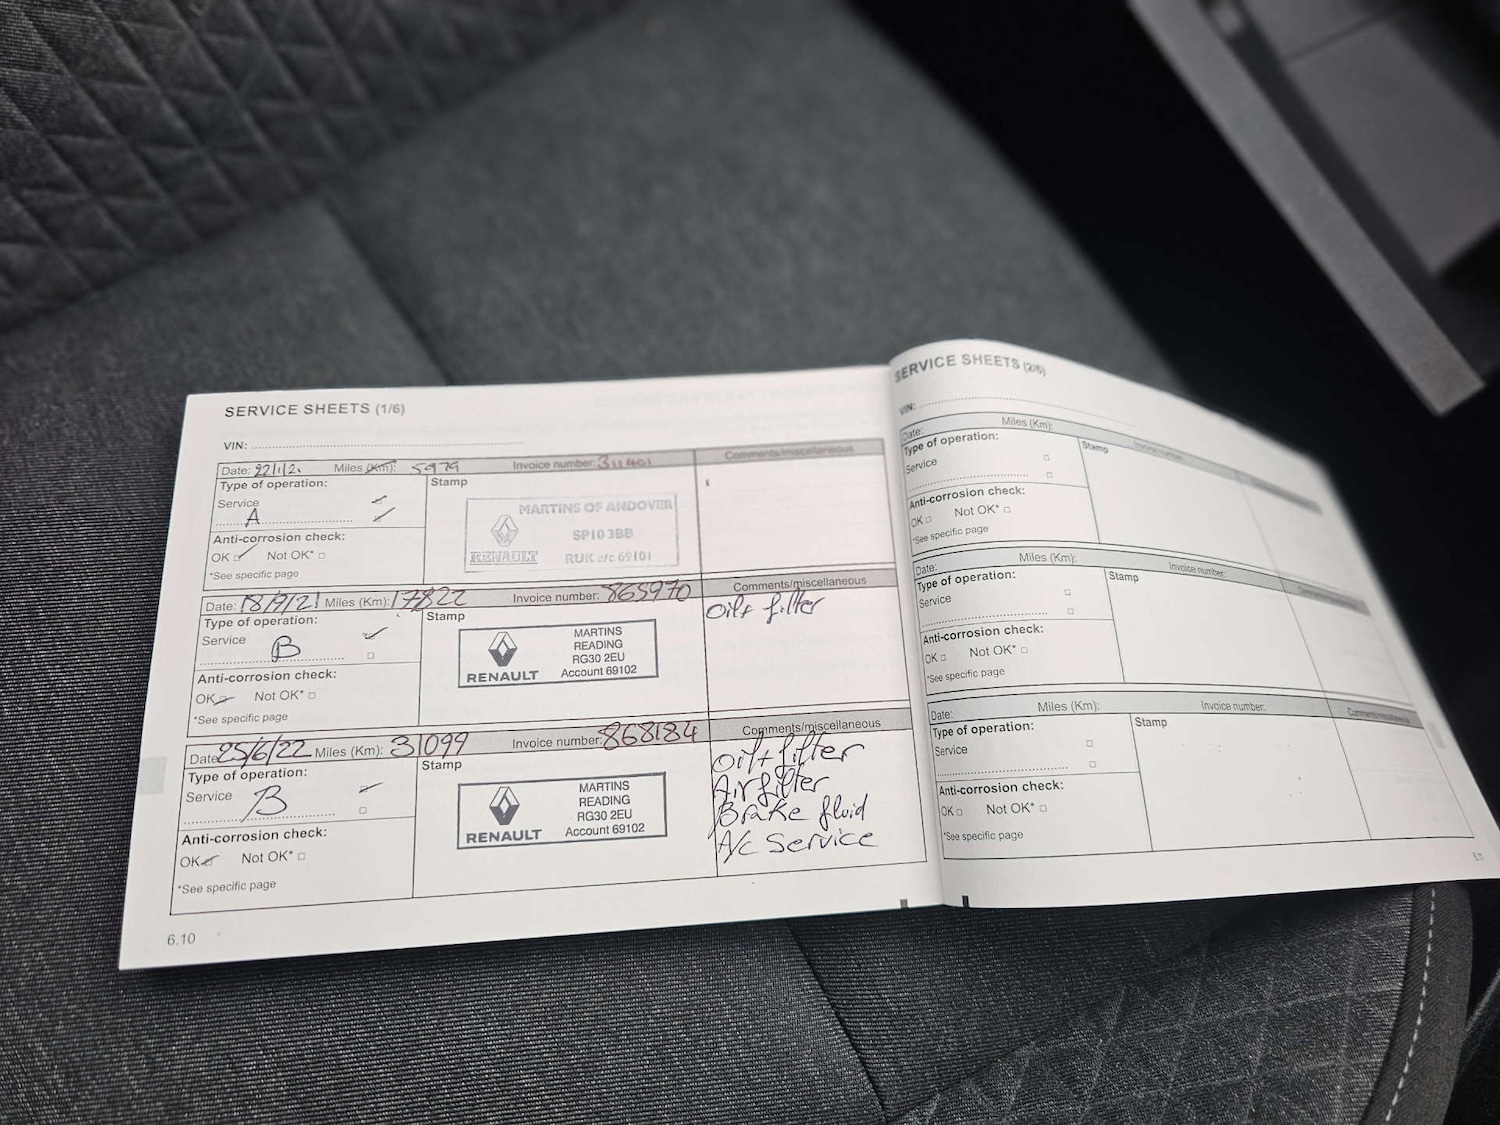 SERVICE SHEETS (1/6)
VIN:
Date: 22/1/21 Miles (Km): 5979 Invoice number: 311401 Comments/miscellaneous
Type of operation: Stamp
Service
A
MARTINS OF ANDOVER
SP10 3BB
RENAULT RUK a/c 69101
Anti-corrosion check:
OK Not OK*
*See specific page
Date: 18/9/21 Miles (Km): 17822 Invoice number: 865970 Comments/miscellaneous
Type of operation: Stamp Oil + filter
Service
B
MARTINS
READING
RG30 2EU
RENAULT Account 69102
Anti-corrosion check:
OK Not OK*
*See specific page
Date: 25/6/22 Miles (Km): 31099 Invoice number: 868184 Comments/miscellaneous
Type of operation: Stamp
Service
B
MARTINS
READING
RG30 2EU
RENAULT Account 69102
Oil + filter
Air filter
Brake fluid
A/c Service
Anti-corrosion check:
OK Not OK*
*See specific page
6.10
SERVICE SHEETS (2/6)
VIN:
Date: Miles (Km): Invoice number:
Type of operation: Stamp
Service
Anti-corrosion check:
OK Not OK*
*See specific page
Date: Miles (Km): Invoice number:
Type of operation: Stamp
Service
Anti-corrosion check:
OK Not OK*
*See specific page
Date: Miles (Km): Invoice number: Comments/miscellaneous
Type of operation: Stamp
Service
Anti-corrosion check:
OK Not OK*
*See specific page